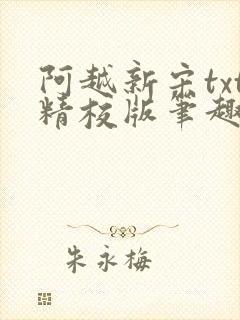 阿越新宋txt
精校版笔趣
朱永梅